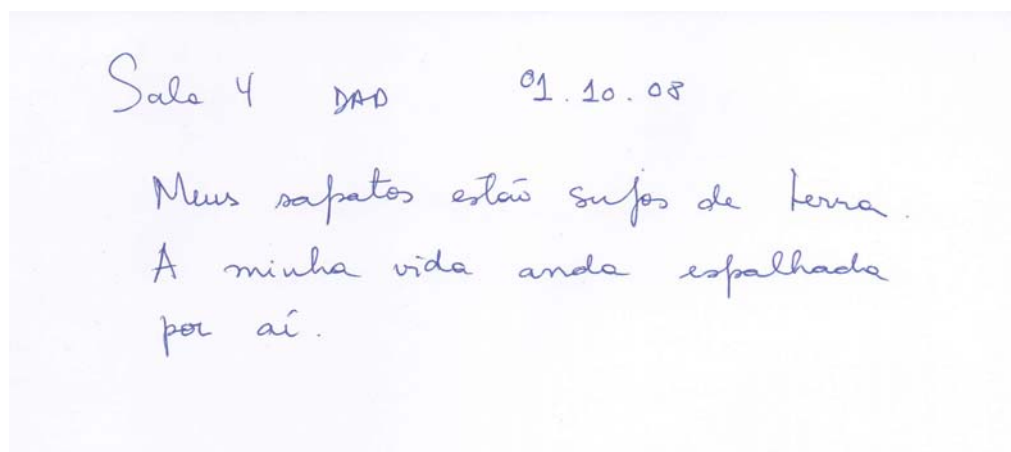 Sala 4 DAD 01.10.08
Meus sapatos estão sujos de terra.
A minha vida anda espalhada
por aí.